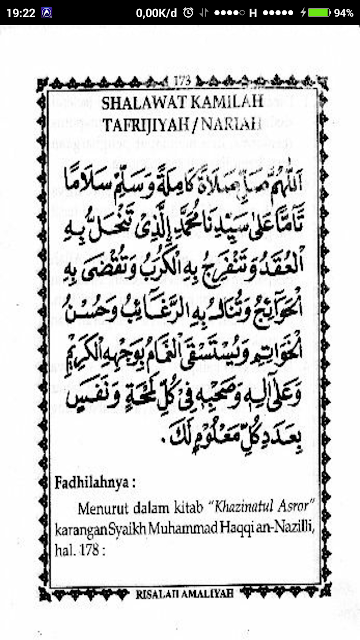 19:22 0,00K/d H 94%
173
SHALAWAT KAMILAH
TAFRIJIYAH / NARIAH
اَللّٰهُمَّ صَلِّ صَلَاةً كَامِلَةً وَسَلِّمْ سَلَامًا
تَآمًّا عَلَى سَيِّدِنَا مُحَمَّدٍ الَّذِىْ تَنْحَلُّ بِهِ
الْعُقَدُ وَتَنْفَرِجُ بِهِ الْكُرَبُ وَتُقْضَى بِهِ
الْحَوَآئِجُ وَتُنَالُ بِهِ الرَّغَآئِبُ وَحُسْنُ
الْخَوَاتِمِ وَيُسْتَسْقَى الْغَمَامُ بِوَجْهِهِ الْكَرِيْمِ
وَعَلَى آلِهِ وَصَحْبِهِ فِىْ كُلِّ لَمْحَةٍ وَنَفَسٍ
بِعَدَدِ كُلِّ مَعْلُوْمٍ لَكَ.
Fadhilahnya :
Menurut dalam kitab "Khazinatul Asror"
karangan Syaikh Muhammad Haqqi an-Nazilli,
hal. 178 :
RISALAH AMALIYAH